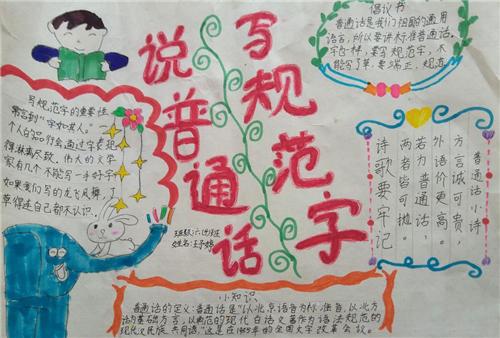 说普通话
写规范字
倡议书
普通话是我们祖国的通用
语言,所以要讲标准普通话。
字也一样,要写规范字,不
能写了草,要端正,规范
写规范字的重要性
常言到"字如其人。"
个人的品行会通过字表现
得淋漓尽致,伟大的文学
家有几个不能写一手好字
如果我们写的龙飞凤舞,了
草得连自己都不认识。
普通话小诗
方言诚可贵,
外语价更高。
若为普通话,
两者皆可抛。
诗歌要牢记
班级:六
姓名:王
小知识
普通话的定义:普通话是"以北京语音为标准音,以北方
话为基础方言,以典范的现代白话文著作为语法规范的
现代汉民族共同语。"这是在1955年的全国文字改革会议。